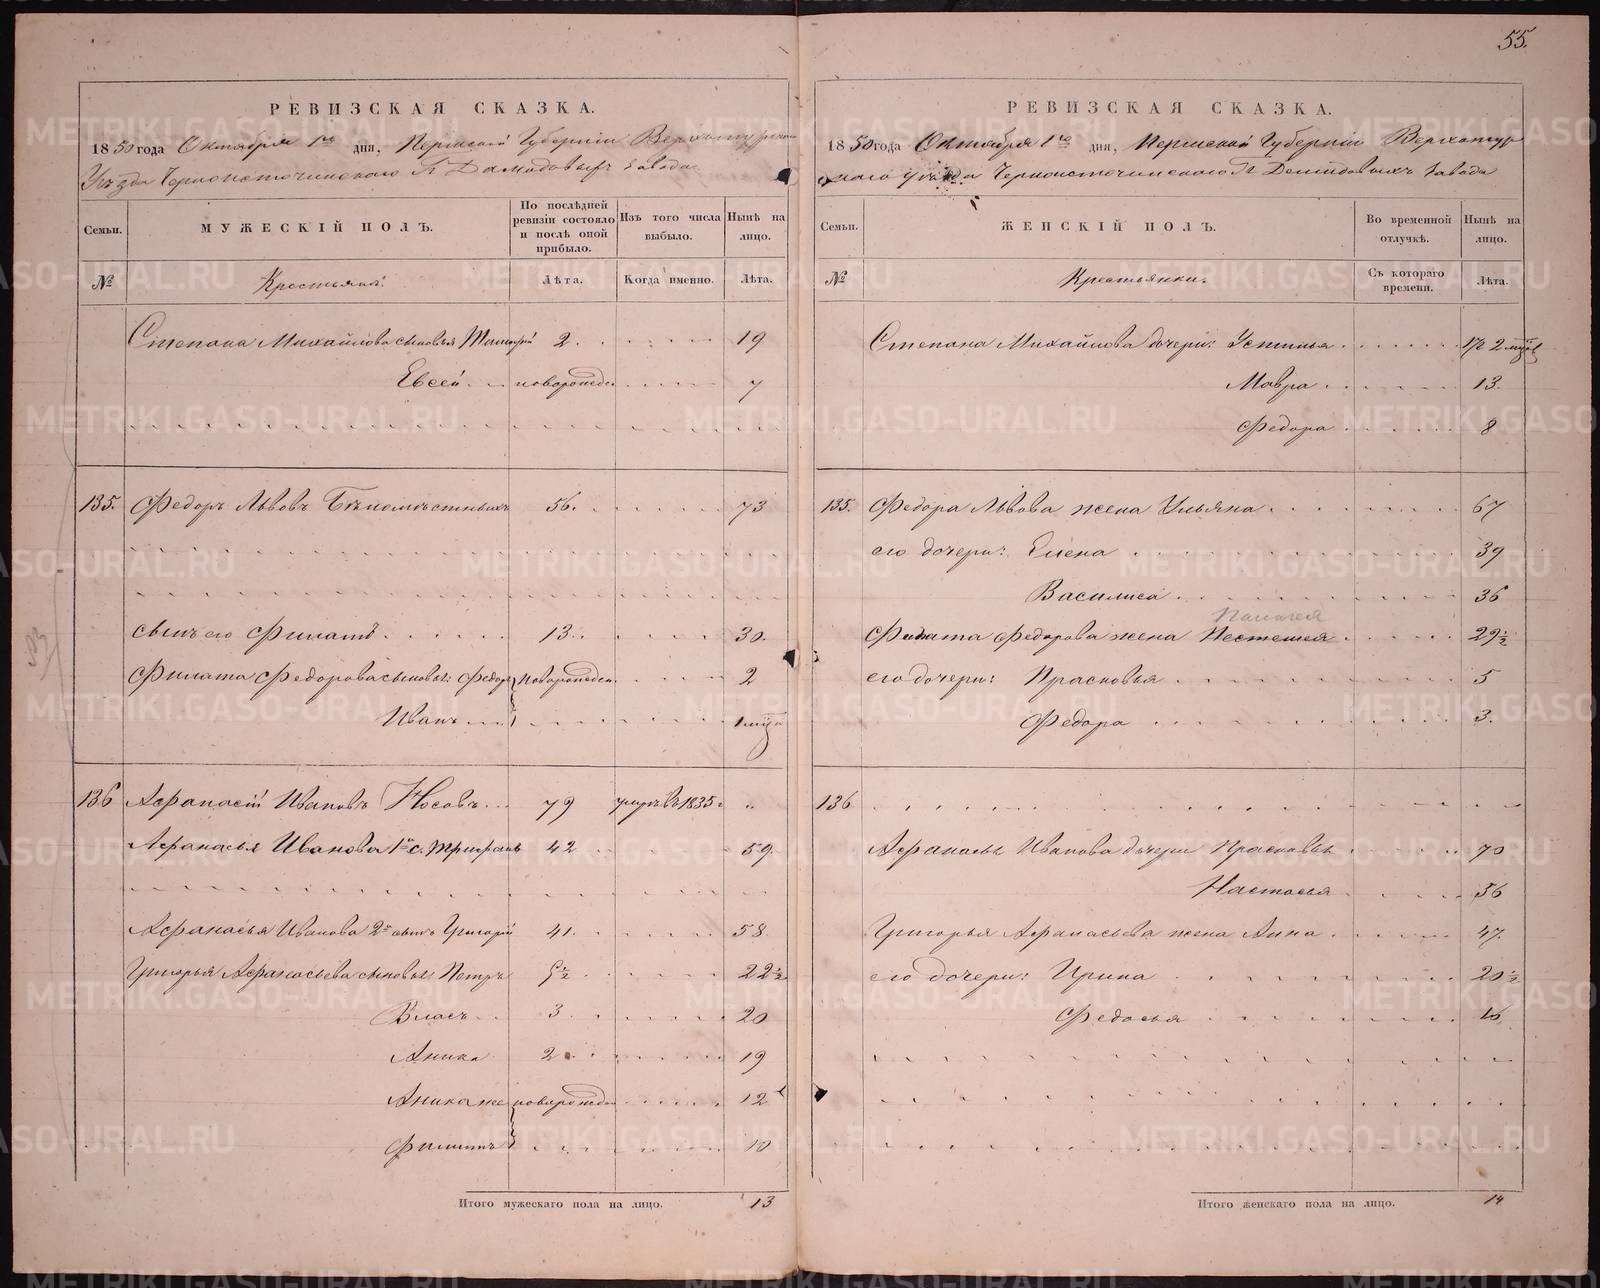 55.
РЕВИЗСКАЯ СКАЗКА.
1850 года Октября 1го дня, Пермской Губерніи Верхотурскаго
Уѣзда Черноисточинскаго Гг Демидовыхъ завода
Семьи. МУЖЕСКІЙ ПОЛЪ. По послѣдней ревизіи состояло и послѣ оной прибыло. Изъ того числа выбыло. Нынѣ на лицо.
№ Крестьяне: Лѣта. Когда именно. Лѣта.
Степана Михайлова сыновья 2 19
Евсей новорожден 7
135. Федоръ Львовъ Безпомѣстныхъ 56. 73
сынъ его Филатъ 13. 30.
Филата Федорова сыновья: Федоръ новорожден. 2
Иванъ 1 мѣсяц
136 Афанасій Ивановъ Носовъ 79 умръ въ 1835 г "
Афанасья Иванова 1й с. Трифонъ 42 59.
Афанасья Иванова 2й сынъ Григорій 41. 58.
Григорья Афанасьева сыновья Петръ 5½ 22½
Власъ 3 20
Аника 2 19
Аника же новорожден 12
Филиппъ 10
Итого мужескаго пола на лицо. 13
РЕВИЗСКАЯ СКАЗКА.
1850 года Октября 1го дня, Пермской Губерніи Верхотур
скаго Уѣзда Черноисточинскаго Гг Демидовыхъ завода
Семьи. ЖЕНСКІЙ ПОЛЪ. Во временной отлучкѣ. Нынѣ на лицо.
№ Крестьянки: Съ котораго времени. Лѣта.
Степана Михайлова дочери: Устинья
Мавра 13.
Федора 8
135. Федора Львова жена Ульяна 67
его дочери: Елена 39
Василиса 36
Пелагея
Филата Федорова жена 29½
его дочери: Прасковья 5
Федора 3.
136
Афанасья Иванова дочери Прасковья 70
Настасья 56
Григорья Афанасьева жена Анна 47.
его дочери: Ирина 20½
Федосья 16
Итого женскаго пола на лицо. 14
METRIKI.GASO-URAL.RU